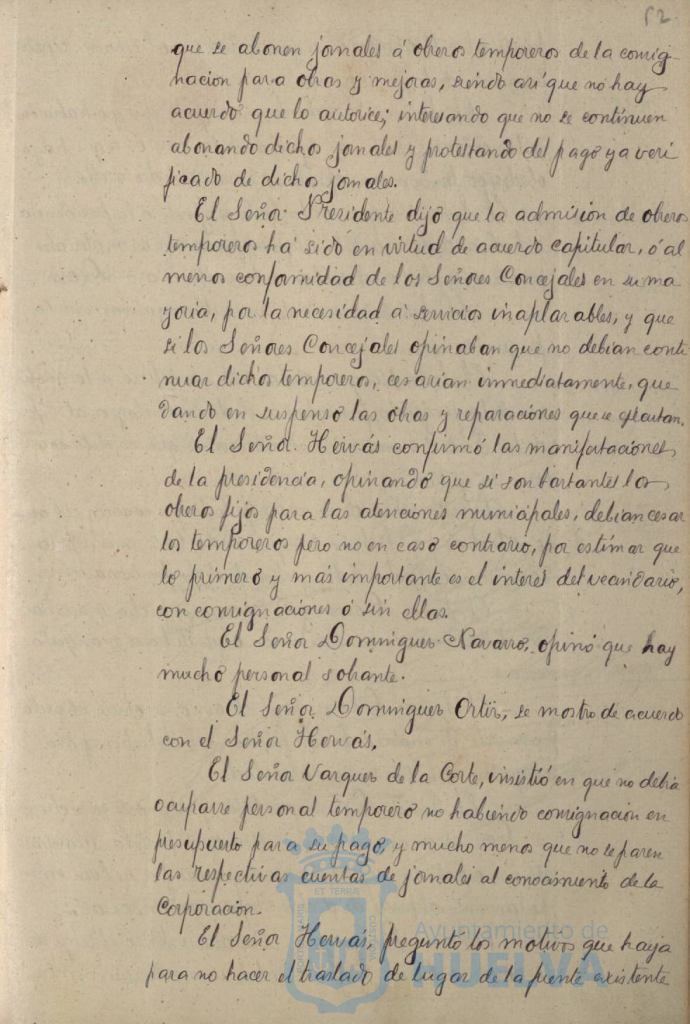 52
que se abonen jornales á obreros temporeros de la consig-
nacion para obras y mejoras, siendo asi que no hay
acuerdo que lo autorice; interesando que no se continuen
abonando dichos jornales y protestando del pago ya veri
ficado de dichos jornales.
El Señor Presidente dijo que la admision de obreros
temporeros ha sido en virtud de acuerdo capitular, ó al
menos conformidad de los Señores Concejales en su ma
yoria, por la necesidad á servicios inaplazables, y que
si los Señores Concejales opinaban que no debian conti
nuar dichos temporeros, cesarian immediatamente, que
dando en suspenso las obras y reparaciones que se ejecutan.
El Señor Hervás confirmó las manifestaciones
de la presidencia, opinando que si son bastantes los
obreros fijos para las atenciones municipales, debian cesar
los temporeros pero no en caso contrario, por estimar que
lo primero y más importante es el interes del vecindario,
con consignaciones ó sin ellas.
El Señor Dominguez Navarro, opinó que hay
mucho personal sobrante.
El Señor Dominguez Ortiz, se mostro de acuerdo
con el Señor Hervás.
El Señor Vazquez de la Corte, insistió en que no debia
ocuparse personal temporero no habiendo consignacion en
presupuesto para su pago, y mucho menos que no se pasen
las respectivas cuentas de jornales al conocimiento de la
Corporacion.
El Señor Hervás, preguntó los motivos que haya
para no hacer el traslado de lugar de la fuente existente
ET TERRA
Ayuntamiento de
HUELVA